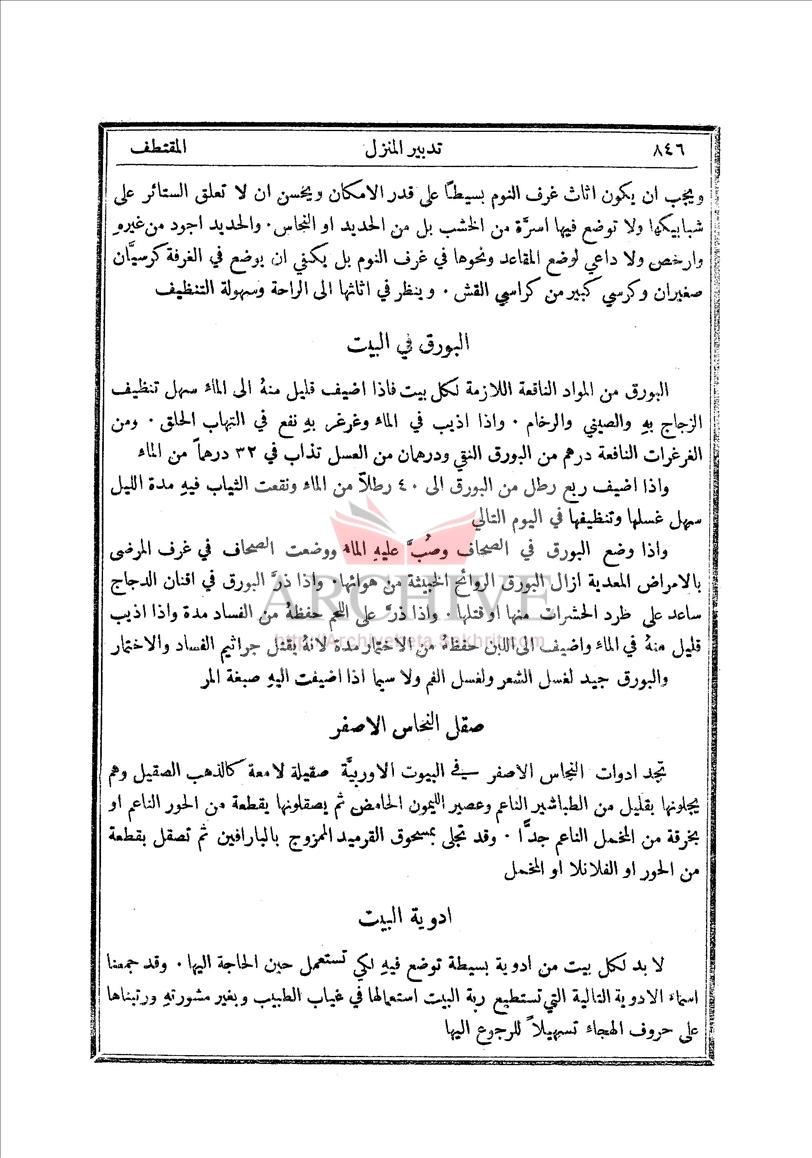 ٨٤٦ تدبير المنزل المقتطف
ويجب ان يكون اثاث غرف النوم بسيطًا على قدر الامكان ويحسن ان لا تعلق الستائر على
شبابيكها ولا توضع فيها اسرَّة من الخشب بل من الحديد او النحاس. والحديد اجود من غيرهِ
وارخص ولا داعي لوضع المقاعد ونحوها في غرف النوم بل يكفي ان يوضع في الغرفة كرسيَّان
صغيران وكرسي كبير من كراسي القش. وينظر في اثاثها الى الراحة وسهولة التنظيف
البورق في البيت
البورق من المواد النافعة اللازمة لكل بيت فاذا اضيف قليل منهُ الى الماء سهل تنظيف
الزجاج بهِ والصيني والرخام. واذا اذيب في الماء وغرغر بهِ نفع في التهاب الحلق. ومن
الغرغرات النافعة درهم من البورق النقي ودرهمان من العسل تذاب في ٣٢ درهماً من الماء
واذا اضيف ربع رطل من البورق الى ٤٠ رطلاً من الماء ونقعت الثياب فيهِ مدة الليل
سهل غسلها وتنظيفها في اليوم التالي
واذا وضع البورق في الصحاف وصُبَّ عليهِ الماء ووضعت الصحاف في غرف المرضى
بالامراض المعدية ازال البورق الروائح الخبيثة من هوائها. واذا ذرَّ البورق في اقنان الدجاج
ساعد على طرد الحشرات منها او قتلها. واذا ذرَّ على اللحم حفظهُ من الفساد مدة واذا اذيب
قليل منهُ في الماء واضيف الى اللبن حفظهُ من الاختمار مدة لانهُ يقتل جراثيم الفساد والاختمار
والبورق جيد لغسل الشعر ولغسل الفم ولا سيما اذا اضيفت اليهِ صبغة المر
ARCHIVE
http://Archivebeta.Sakhrit.com
صقل النحاس الاصفر
تجد ادوات النحاس الاصفر في البيوت الاوربيَّة صقيلة لامعة كالذهب الصقيل وهم
يجلونها بقليل من الطباشير الناعم وعصير الليمون الحامض ثم يصقلونها بقطعة من الحور الناعم او
بخرقة من المخمل الناعم جدًّا. وقد تجلى بمسحوق القرميد الممزوج بالبارافين ثم تصقل بقطعة
من الحور او الفلانلا او المخمل
ادوية البيت
لا بد لكل بيت من ادوية بسيطة توضع فيهِ لكي تستعمل حين الحاجة اليها. وقد جمعنا
اسماء الادوية التالية التي تستطيع ربة البيت استعمالها في غياب الطبيب وبغير مشورتهِ ورتبناها
على حروف الهجاء تسهيلاً للرجوع اليها